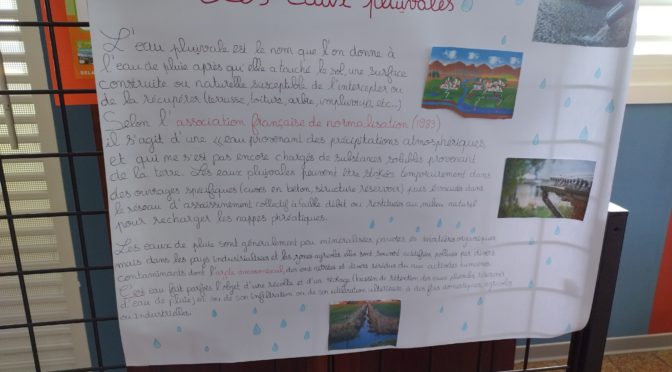 Les eaux pluviales
L'eau pluviale est le nom que l'on donne à
l'eau de pluie après qu'elle a touché le sol, une surface
construite ou naturelle susceptible de l'intercepter ou
de la récupérer (terrasse, toiture, arbre, impluvium, etc...)
Selon l'association française de normalisation (1989)
il s'agit d'une «eau provenant des précipitations atmosphériques,
et qui ne s'est pas encore chargés de substances solubles provenant
de la terre. Les eaux pluviales peuvent être stokés temporairement dans
des ouvrages spécifiques (cuves en béton, structure réservoir) puis évacués dans
le réseau d'assainissement collectif à faible débit ou restitués au milieu naturel
pour recharger les nappes phréatiques.
Les eaux de pluie sont généralement peu minéralisés, pauvres en matières organiques
mais dans les pays industrialisés et les zones agricoles elles sont souvent acidifiés polluées par divers
contaminants dont l'acide des ions nitrates et divers résidus du aux activités humaines.
C'es eau fait parfois l'objet d'une récolte et d'un stockage (bassin de rétention des eaux pluviales, réservoir
d'eau de pluie) en vu de son infiltration ou de son utilisation ultérieure à des fins domestiques, agricoles
ou industrielles.